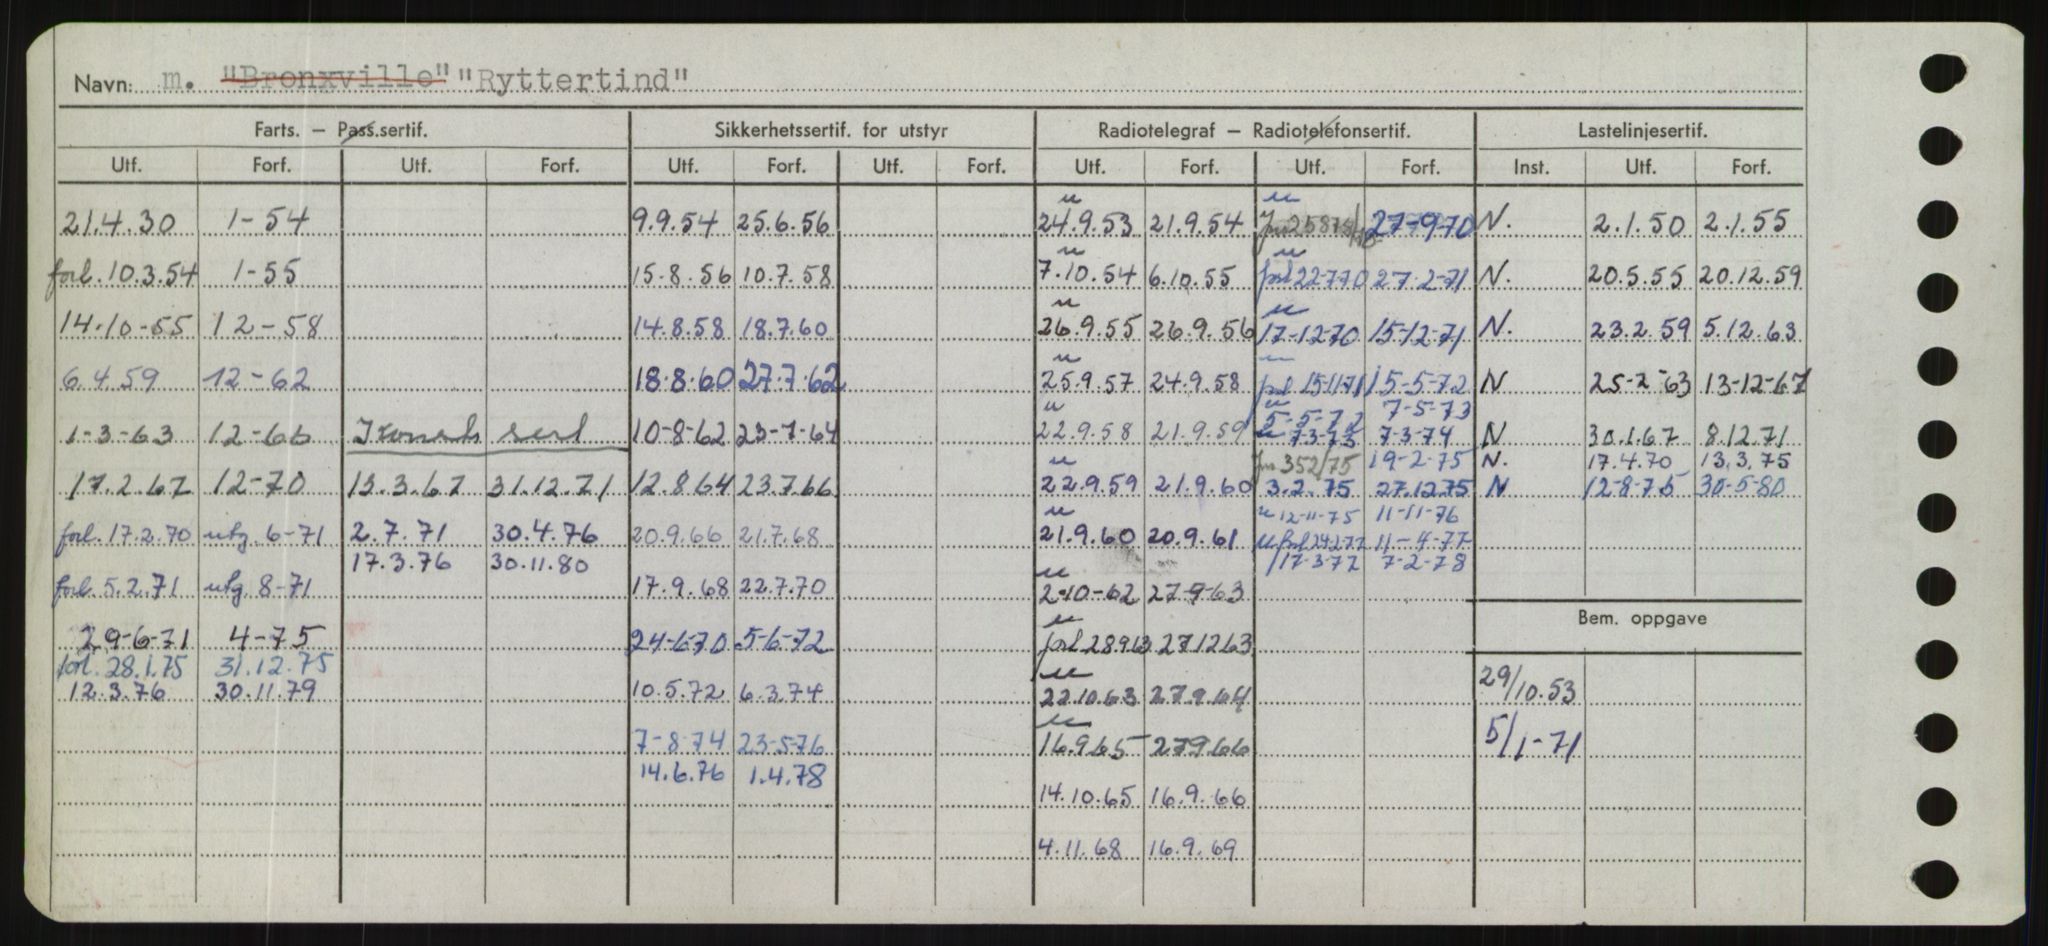 Navn: m. "Bronxville" "Ryttertind"
Farts. – Pass.sertif. Sikkerhetssertif. for utstyr Radiotelegraf – Radiotelefonsertif. Lastelinjesertif.
Utf. Forf. Utf. Forf. Utf. Forf. Utf. Forf. Utf. Forf. Utf. Forf. Inst. Utf. Forf.
21.4.30 1-54 9.9.54 25.6.56 24.9.53 21.9.54 27-9-70 N. 2.1.50 2.1.55
forl. 10.3.54 1-55 15-8.56 10.7.58 7.10.54 6.10.55 forl 22-7-70 27-2-71 N. 20.5.55 20.12.59
14-10-55 12-58 14.8.58 18.7.60 26.9.55 26.9.56 17-12-70 15-12-71 N. 23.2.59 5.12.63
6.4.59 12-62 18.8.60 27.7.62 25.9.57 24.9.58 forl 15-11-71 15-5-72 N 25-2-63 13-12-67
5-5-72 7-5-73
1-3-63 12-66 10-8-62 23-7-64 22.9.58 21.9.59 7-3-73 7-3-74 N 30.1.67 8.12.71
352/75 19-2-75 N. 17.4.70 13.3.75
17.2.67 12-70 13.3.67 31.12.71 12.8.64 23.7.66 22.9.59 21.9.60 3.2.75 27.12.75 N 12-8-75 30-5-80
12-11-75 11-11-76
forl. 17.2.70 utg. 6-71 2.7.71 30.4.76 20.9.66 21.7.68 21.9.60 20.9.61 forl 24.2.77 11-4-77
17.3.76 30.11.80 17-3-77 7-2-78
forl. 5.2.71 utg. 8-71 17.9.68 22.7.70 2-10-62 27-9-63
Bem. oppgave
29-6-71 4-75 24-6-70 5-6-72 forl 28963 271263
forl. 28.1.75 31.12.75
12.3.76 30.11.79 10.5.72 6.3.74 22.10.63 27.9.64 29/10.53
7-8-74 23-5-76 16.9.65 27.9.66 5/1-71
14.6.76 1.4.78
14.10.65 16.9.66
4.11.68 16.9.69